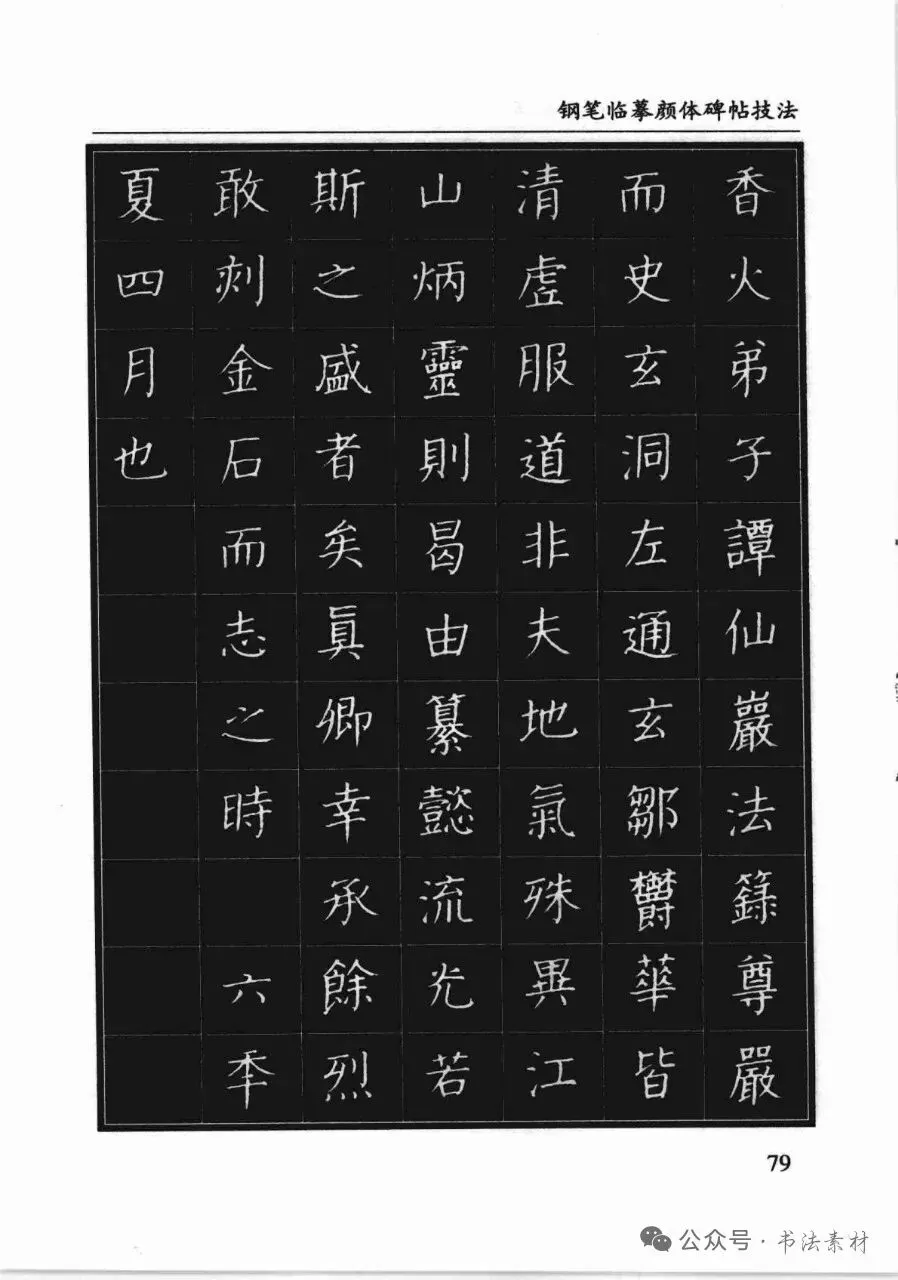 钢笔临摹颜体碑帖技法
香火弟子譚仙巖法籙尊嚴
而史玄洞左通玄鄒鬱華皆
清虛服道非夫地氣殊異江
山炳靈則曷由纂懿流光若
斯之盛者矣真卿幸承餘烈
敢刺金石而志之時 六年
夏四月也
79
公众号·书法素材